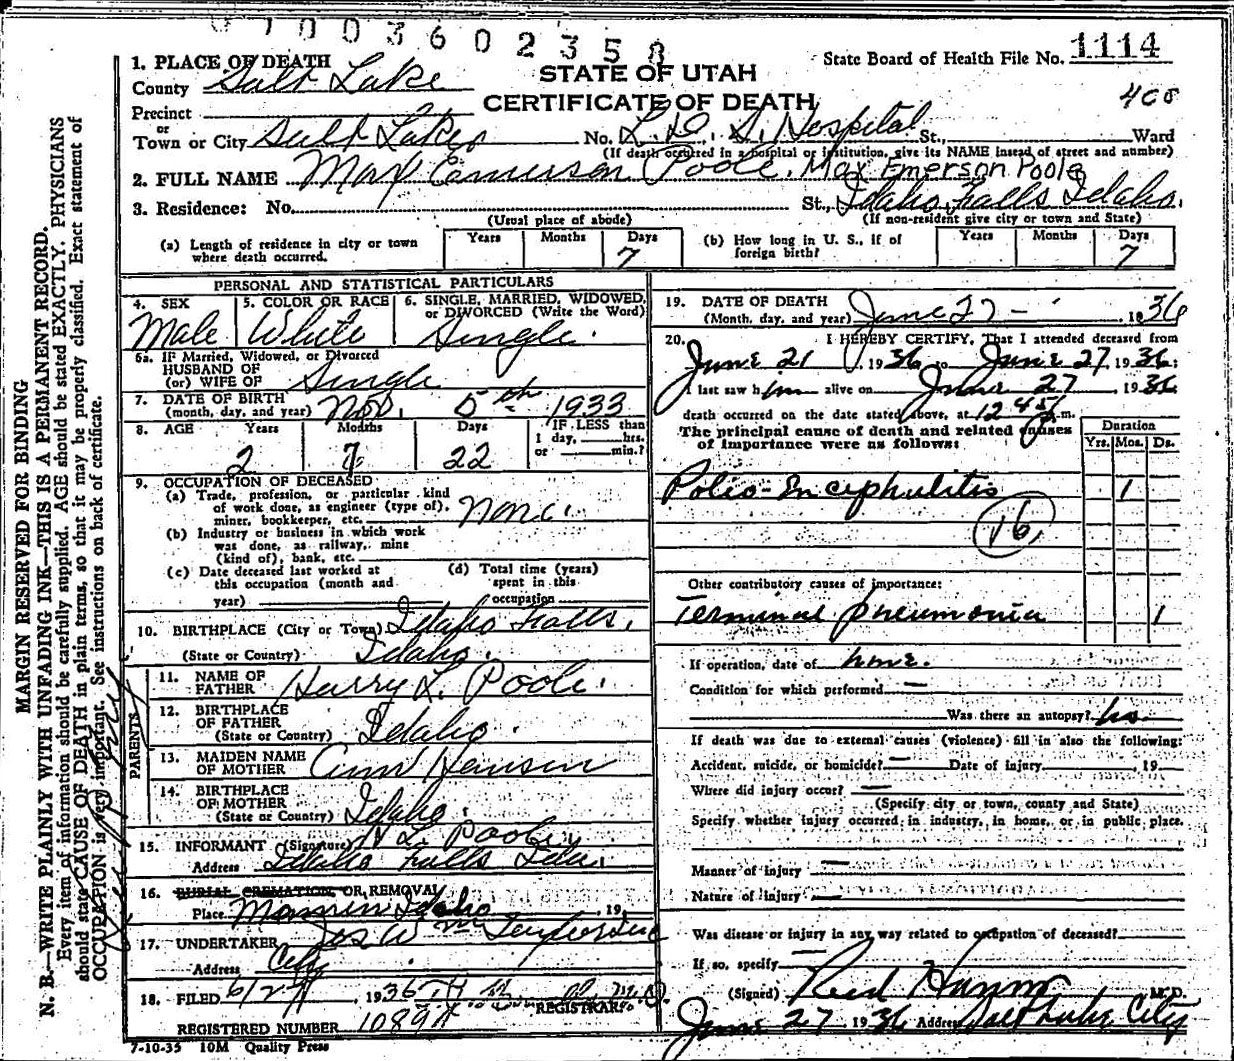 0 7 0 0 3 6 0 2 3 5 8
1. PLACE OF DEATH
County Salt Lake
STATE OF UTAH
State Board of Health File No. 1114
CERTIFICATE OF DEATH
Precinct
or
Town or City Salt Lake No. L.D.S. Hospital St., Ward
(If death occurred in a hospital or institution, give its NAME instead of street and number)
2. FULL NAME Max Emerson Poole. Max Emerson Poole
3. Residence: No. St., Idaho Falls Idaho.
(Usual place of abode) (If non-resident give city or town and State)
(a) Length of residence in city or town where death occurred. Years Months Days 7
(b) How long in U. S., if of foreign birth? Years Months Days 7
PERSONAL AND STATISTICAL PARTICULARS
4. SEX 5. COLOR OR RACE 6. SINGLE, MARRIED, WIDOWED, or DIVORCED (Write the Word)
Male White Single.
6a. IF Married, Widowed, or Divorced
HUSBAND OF
(or) WIFE OF Single
7. DATE OF BIRTH
(month, day, and year) Nov. 5th 1933
8. AGE Years Months Days IF LESS than
1 day, hrs.
or min.?
2 7 22
9. OCCUPATION OF DECEASED
(a) Trade, profession, or particular kind
of work done, as engineer (type of),
miner, bookkeeper, etc. None.
(b) Industry or business in which work
was done, as railway, mine
(kind of), bank, etc.
(c) Date deceased last worked at
this occupation (month and
year)
(d) Total time (years)
spent in this
occupation
10. BIRTHPLACE (City or Town) Idaho Falls,
(State or Country) Idaho.
PARENTS
11. NAME OF
FATHER Harry L. Poole.
12. BIRTHPLACE
OF FATHER
(State or Country) Idaho.
13. MAIDEN NAME
OF MOTHER Ann Hansen
14. BIRTHPLACE
OF MOTHER
(State or Country) Idaho.
15. INFORMANT (Signature) H L Poole
Address Idaho Falls Ida.
16. BURIAL CREMATION OR REMOVAL
Place Idaho , 19
17. UNDERTAKER Jos W
Address City
18. FILED 6/27 1936 REGISTRAR
REGISTERED NUMBER 1089
7-10-35 10M Quality Press
19. DATE OF DEATH
(Month, day, and year) June 27 - 1936
20. I HEREBY CERTIFY, That I attended deceased from
June 21 , 1936 to June 27, 1936;
I last saw him alive on June 27 , 1936
death occurred on the date stated above, at 12 45 m.
The principal cause of death and related causes
of importance were as follows:
Duration
Yrs. Mos. Ds.
Polio-Encephalitis 1
16
Other contributory causes of importance:
Terminal pneumonia 1
If operation, date of none.
Condition for which performed —
Was there an autopsy? no
If death was due to external causes (violence) fill in also the following:
Accident, suicide, or homicide? — Date of injury , 19
Where did injury occur? —
(Specify city or town, county and State)
Specify whether injury occurred in industry, in home, or in public place.
Manner of injury —
Nature of injury —
Was disease or injury in any way related to occupation of deceased?
If so, specify —
(Signed) Reed M.D.
June 27 1936 Address Salt Lake City
MARGIN RESERVED FOR BINDING
N. B.—WRITE PLAINLY WITH UNFADING INK—THIS IS A PERMANENT RECORD.
Every item of information should be carefully supplied. AGE should be stated EXACTLY. PHYSICIANS
should state CAUSE OF DEATH in plain terms, so that it may be properly classified. Exact statement of
OCCUPATION is very important. See instructions on back of certificate.